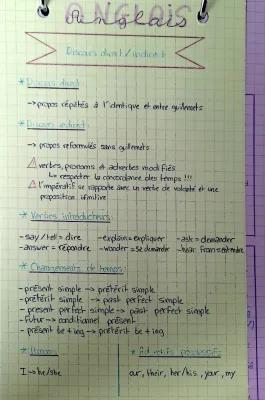 ANGLAIS
Anglais
Discours direct/indirect
* Discours direct
→ propos répétés à l'identique et entre guillemets
* Discours indirect
→ propos reformulés sans guillemets
⚠ verbes, pronoms et adverbes modifiés
↳ respecter la concordance des temps !!!
⚠ l'impératif se rapporte avec un verbe de volonté et une
proposition infinitive
* Verbes introducteurs
- say / tell = dire - explain = expliquer - ask = demander
- answer = répondre - wonder = se demander - hear from = entendre
* Changements de temps
- présent simple → prétérit simple
- prétérit simple → past perfect simple
- present perfect simple → past perfect simple
- futur → conditionnel présent
- présent be + ing → prétérit be + ing
* Adjectifs possessifs
I → he/she
our, their, her/his, your, my